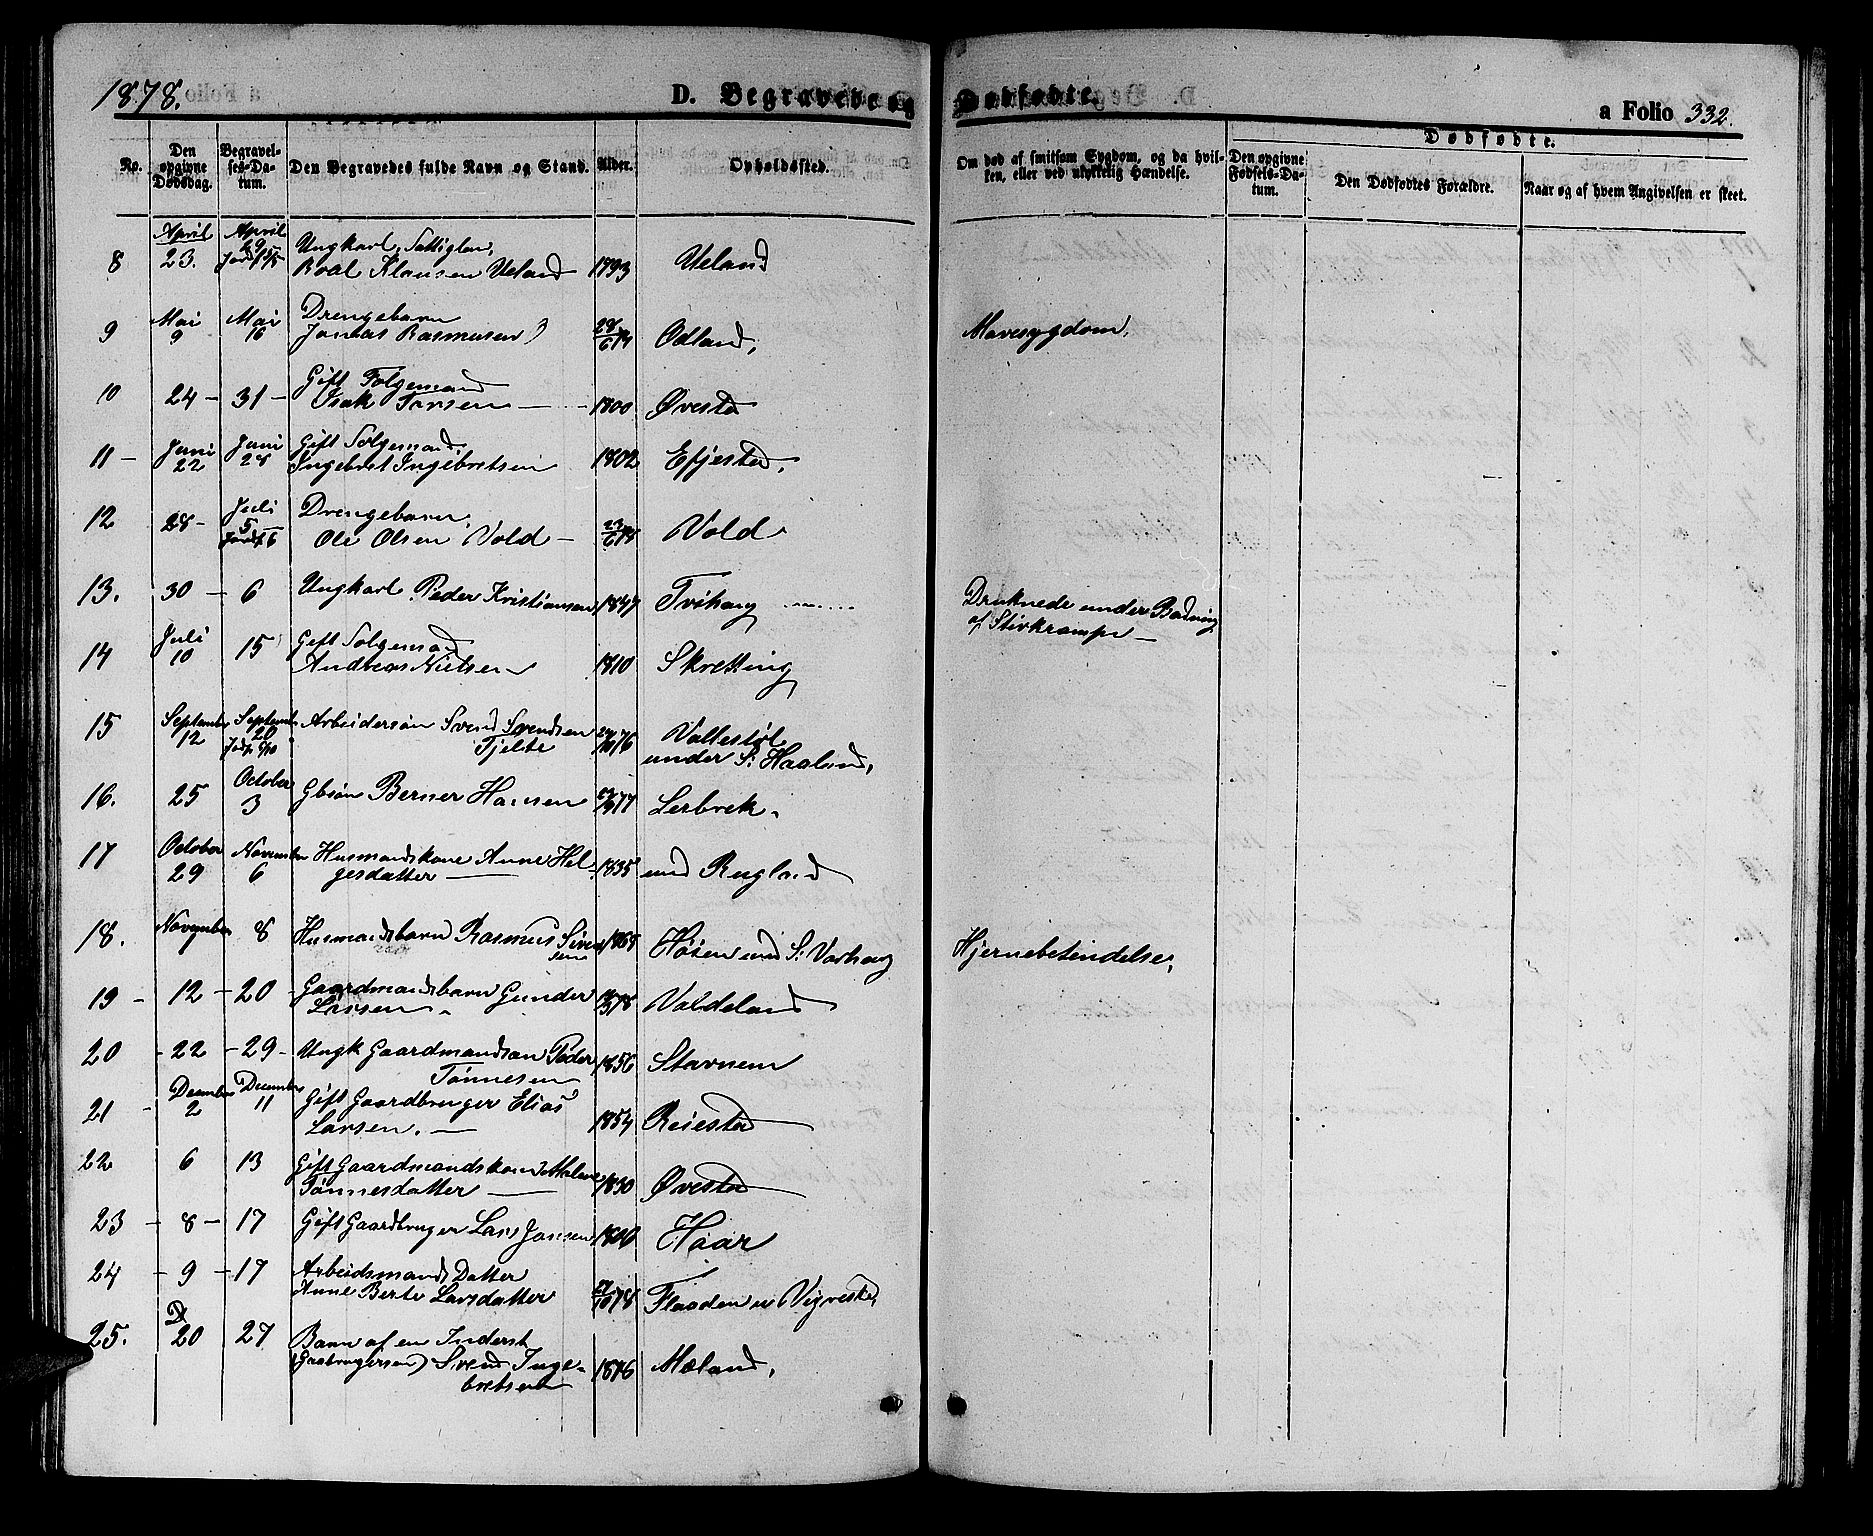 1878.
D. Begravede og Dødfødte.
a Folio 332.
No.
Den opgivne Dødsdag.
Begravelses-Datum.
Den Begravedes fulde Navn og Stand.
Alder.
Opholdssted.
Om død af smitsom Sygdom, og da hvilken, eller ved ulykkelig Hændelse.
Dødfødte.
Den opgivne Fødsels-Datum.
Den Dødfødtes Forældre.
Naar og af hvem Angivelsen er skeet.
April April Ungkarl,
8 23. Roal Klausen Ueland 1793 Ueland
Mai Mai Drengebarn
9 9 16 Jonas Rasmusen 28/6 74 Odland, Mavesygdom.
Gift Folgemand
10 24 - 31 - Isak Torsen 1800 Øvested
Juni Juni Gift Folgemand,
11 - 22 28 Ingebret Ingebretsen 1802 Efjested.
Juli Drengebarn,
12 28 - 5 Ole Olsen Vold - 23/6 78 Vold
13. 30 - 6 Ungkarl Peder Kristiansen 1847 Tvihaug Druknede under Badning
af Stivkrampe -
Juli Gift Folgemand
14 10 15 Andreas Nielsen 1810 Skretting
15 September 12 September 20 Arbeidersøn Svend Svendsen 76 Vallestøl
Tjelte under S. Haaland,
October
16. 25 3 Gbsøn Berner Hansen 77 Lerbrek.
17 October November Husmandskone Anne Hel-
29 6 gesdatter 1835 und Rugland
18. November 8 Husmandsbarn Rasmus Siven
sen 1868 Høien und S. Varhaug Hjernebetendelse,
19 - 12 - 20 - Gaardmandsbarn Gunder
Larsen 78 Valdeland
20 - 22 - 29 - Ungk Gaardmandsøn Peder
Tønnesen 1856 Stavnem
December December
21 - 2 11 Gift Gaardbruger Elias
Larsen. - 1854 Reiestad
22 6 13 Gift Gaardmandskone Malene
Tønnesdatter 1830 Øvested
23 - 8 - 17 Gift Gaardbruger Lars Jonsen Haar
24 - 9 - 17 Arbeidsmands Datter
Anne Berte Larsdatter 78 Flaaden u Vigrestad
D
25. 20 27 Barn af en Inderst
(Gaabrugersøn) Svend Inge-
bretsen 1876 Mæland,